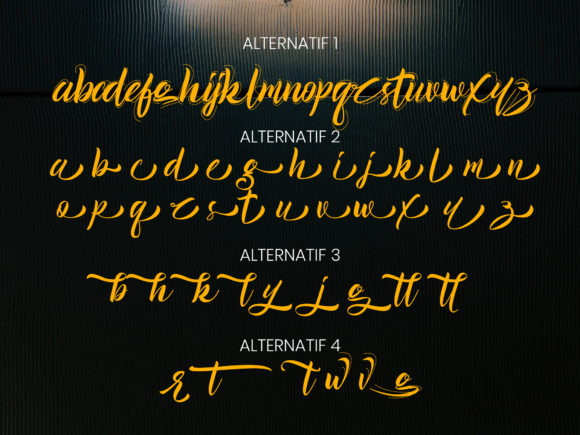 ALTERNATIF 1
abcdefghijklmnopqrstuvwxyz
ALTERNATIF 2
a b c d e g h i j k l m n
o p q r s t u v w x y z
ALTERNATIF 3
b h k l y j g tt ll
ALTERNATIF 4
r t t w v g